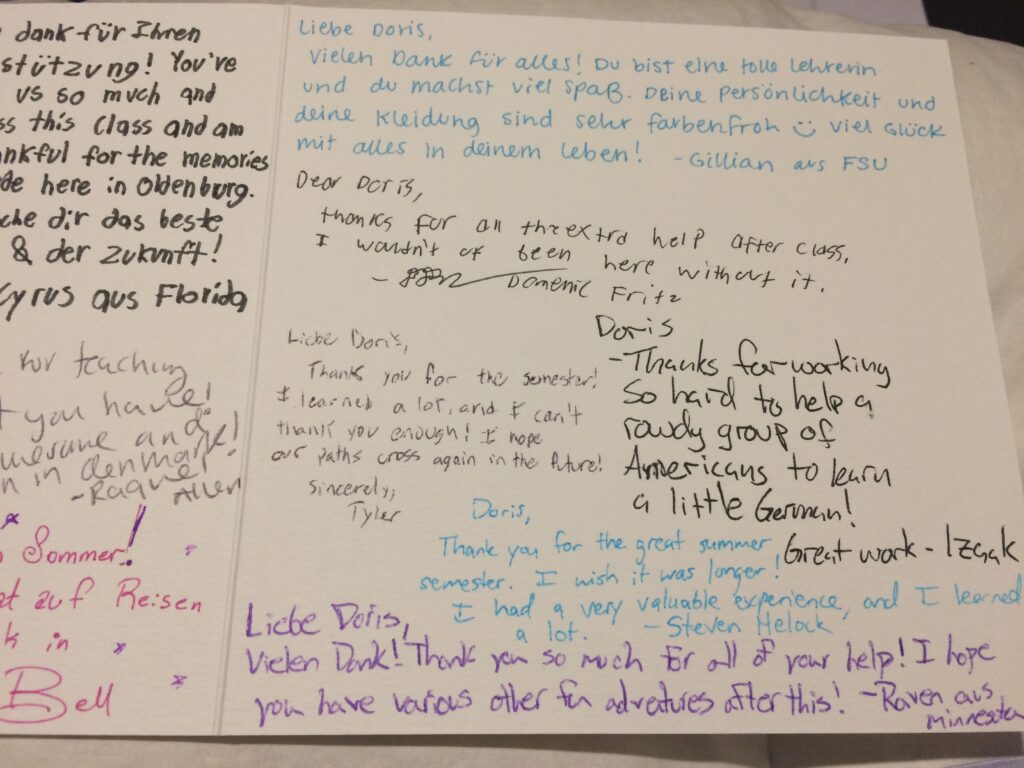 dank für Ihren
stützung! You've
us so much and
ss this class and am
nkful for the memories
de here in Oldenburg.
che dir das beste
& der zukunft!
Cyrus aus Florida
for teaching
you have!
and
in denmark!
-Raquel
Allen
Sommer!
at auf Reisen
k in
Bell
Liebe Doris,
Vielen Dank für alles! Du bist eine tolle Lehrerin
und du machst viel spaß. Deine Persönlichkeit und
deine Kleidung sind sehr farbenfroh ☺ Viel Glück
mit alles in deinem Leben! -Gillian aus FSU
Dear Doris,
thanks for all the extra help after class,
I wouldn't of been here without it.
- Domenic Fritz
Liebe Doris,
Thank you for the semester!
I learned a lot, and I can't
thank you enough! I hope
our paths cross again in the future!
Sincerely,
Tyler
Doris
-Thanks for working
So hard to help a
rowdy group of
Americans to learn
a little German!
Great work - Izaak
Doris,
Thank you for the great summer
semester. I wish it was longer!
I had a very valuable experience, and I learned
a lot. - Steven Melock
Liebe Doris,
Vielen Dank! Thank you so much for all of your help! I hope
you have various other fun adventures after this! -Raven aus
Minnesota